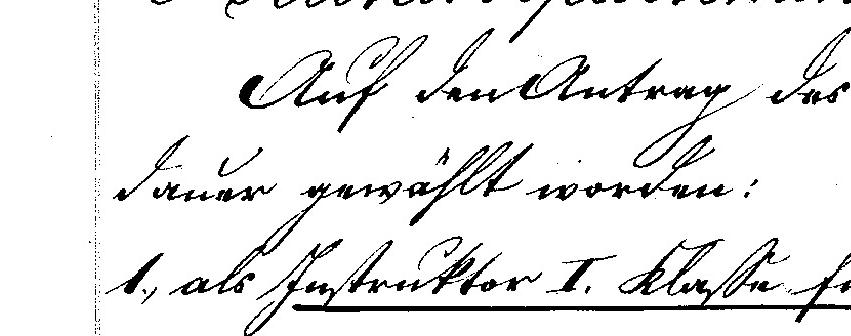 Auf den Antrag des
dauer gewählt worden:
1., als Instruktor I. Klasse